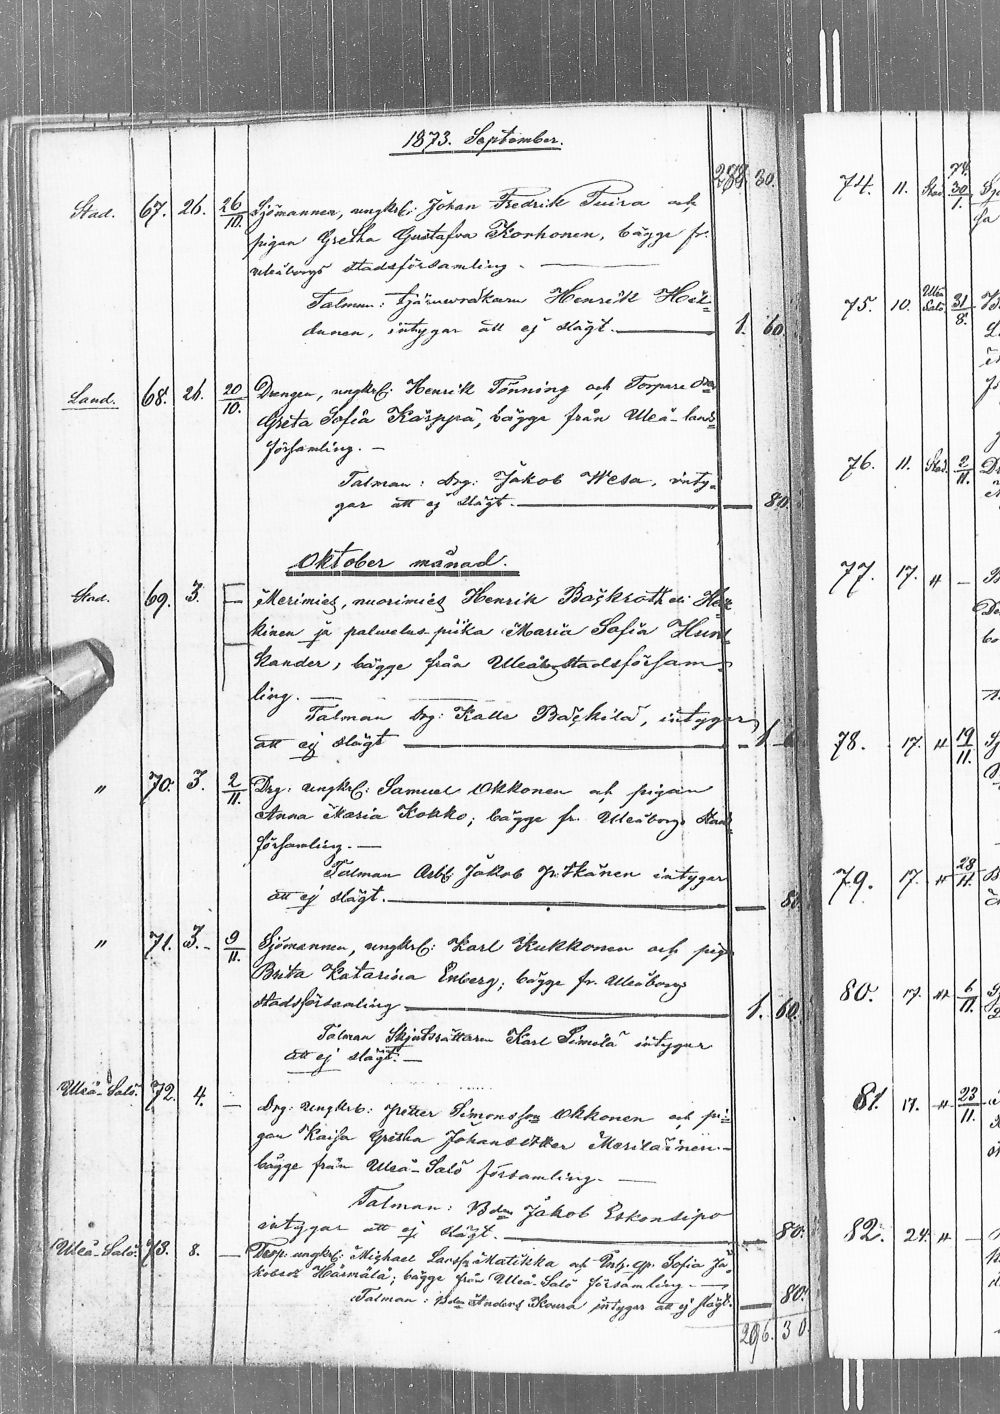 1873. September.
288. 30.
Stad. 67. 26. 26/10. Sjömannen, ungkrl: Johan Fredrik Tuira och
pigan Gretha Gustafva Korhonen, bägge fr.
Uleåborgs stadsförsamling. —
Talman: Henrik
intygar att ej slägt. — 1. 60.
Land. 68. 26. 20/10. Drengen, ungkrl: Henrik Tönning och Torpare
Greta Sofia Käsppä, bägge från Uleå- lands
församling. —
Talman: drg: Jakob Wesa, inty-
gar att ej slägt. — 80.
Oktober månad.
Stad. 69. 3. — Merimies, nuorimies Henrik Backroth eli Hei-
kinen ja palwelus piika Maria Sofia
kander, bägge från Uleåb. stadsförsam-
ling. —
Talman drg: Kalle Backila, intygar
att ej slägt — 1.
" 70. 3. 2/11. Drg: ungkrl: Samuel Okkonen och pigan
Anna Maria Kokko; bägge fr. Uleåborgs stads
församling. —
Talman Arb: Jakob Pitkänen intygar
att ej slägt. — 80.
" 71. 3. 9/11. Sjömannen, ungkrl: Karl Kukkonen och pig
Brita Katarina Enberg; bägge fr. Uleåborgs
stadsförsamling — 1. 60.
Talman Karl Simola intygar
att ej slägt. —
Uleå-Salo. 72. 4. — Drg: Ungkrl: Petter Simonsson Okkonen och pi-
gan Kaisa Gretha Johansdotter Meriläinen —
bägge från Uleå-Salo församling. —
Talman: Bden Jakob Eskonsipo
intygar att ej slägt. — 80.
Uleå-Salo. 73. 8. — Drsp: ungkrl: Michael Larss. Matikka och Sofia Ja-
kobsd. Härmälä; bägge från Uleå-Salo församling. —
Talman: Bden Anders Koura intygar att ej slägt. — 80.
296. 30.
74. 11. Stad 74. 30/1.
75. 10. Uleå Salo. 31/8.
76. 11. Stad. 2/11.
77. 17. " —
78. 17. " 19/11.
79. 17. " 28/11.
80. 17. " 6/11.
81. 17. " 23/11.
82. 24. " —